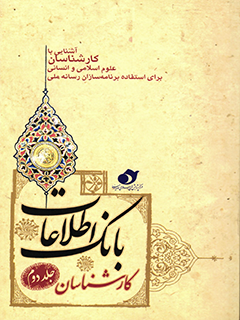 آشنایی با
کارشناسان
علوم اسلامی و انسانی
برای استفاده برنامه‌سازان رسانه ملی
بانک اطلاعات
کارشناسان
جلد دوم